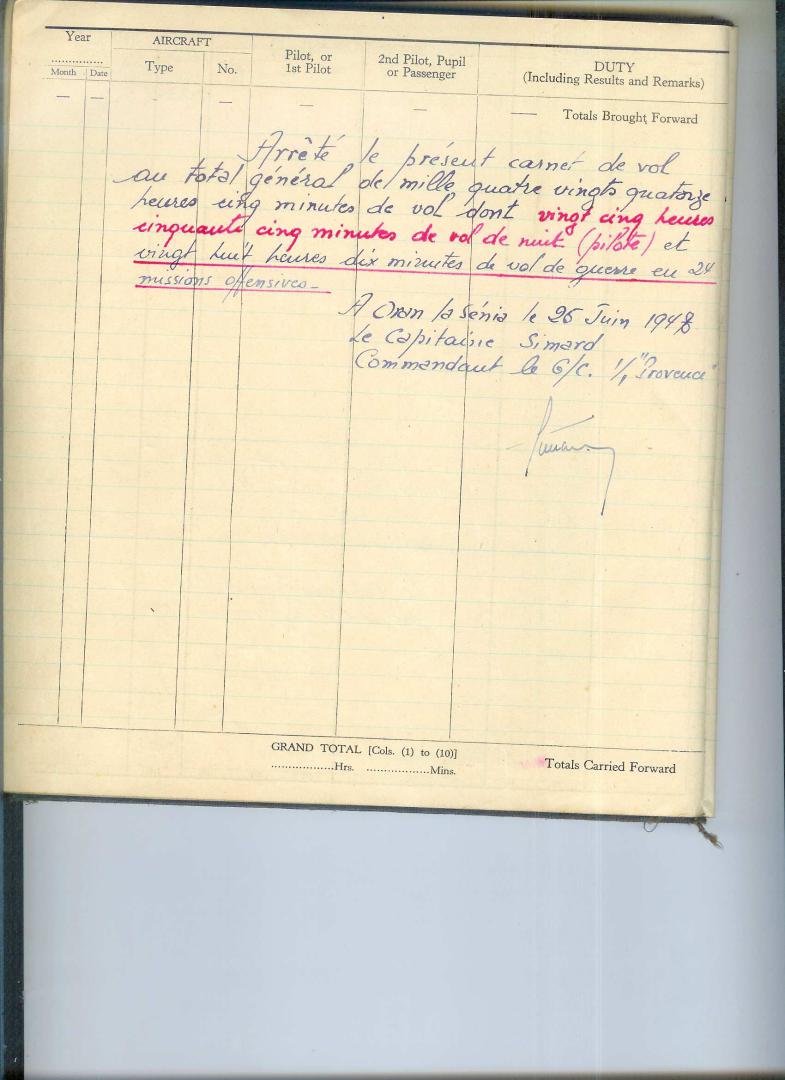 Year
AIRCRAFT
Pilot, or
1st Pilot
2nd Pilot, Pupil
or Passenger
DUTY
(Including Results and Remarks)
Month Date
Type
No.
— — — — — — Totals Brought Forward
Arrêté le présent carnet de vol
au total général de mille quatre vingts quatorze
heures cinq minutes de vol dont vingt cinq heures
cinquante cinq minutes de vol de nuit (pilote) et
vingt huit heures dix minutes de vol de guerre en 24
missions offensives-
A Oran la Sénia le 26 Juin
Le Capitaine Simard
Commandant le G/C. 1/1 "Provence"
GRAND TOTAL [Cols. (1) to (10)]
..................Hrs. ..................Mins.
Totals Carried Forward